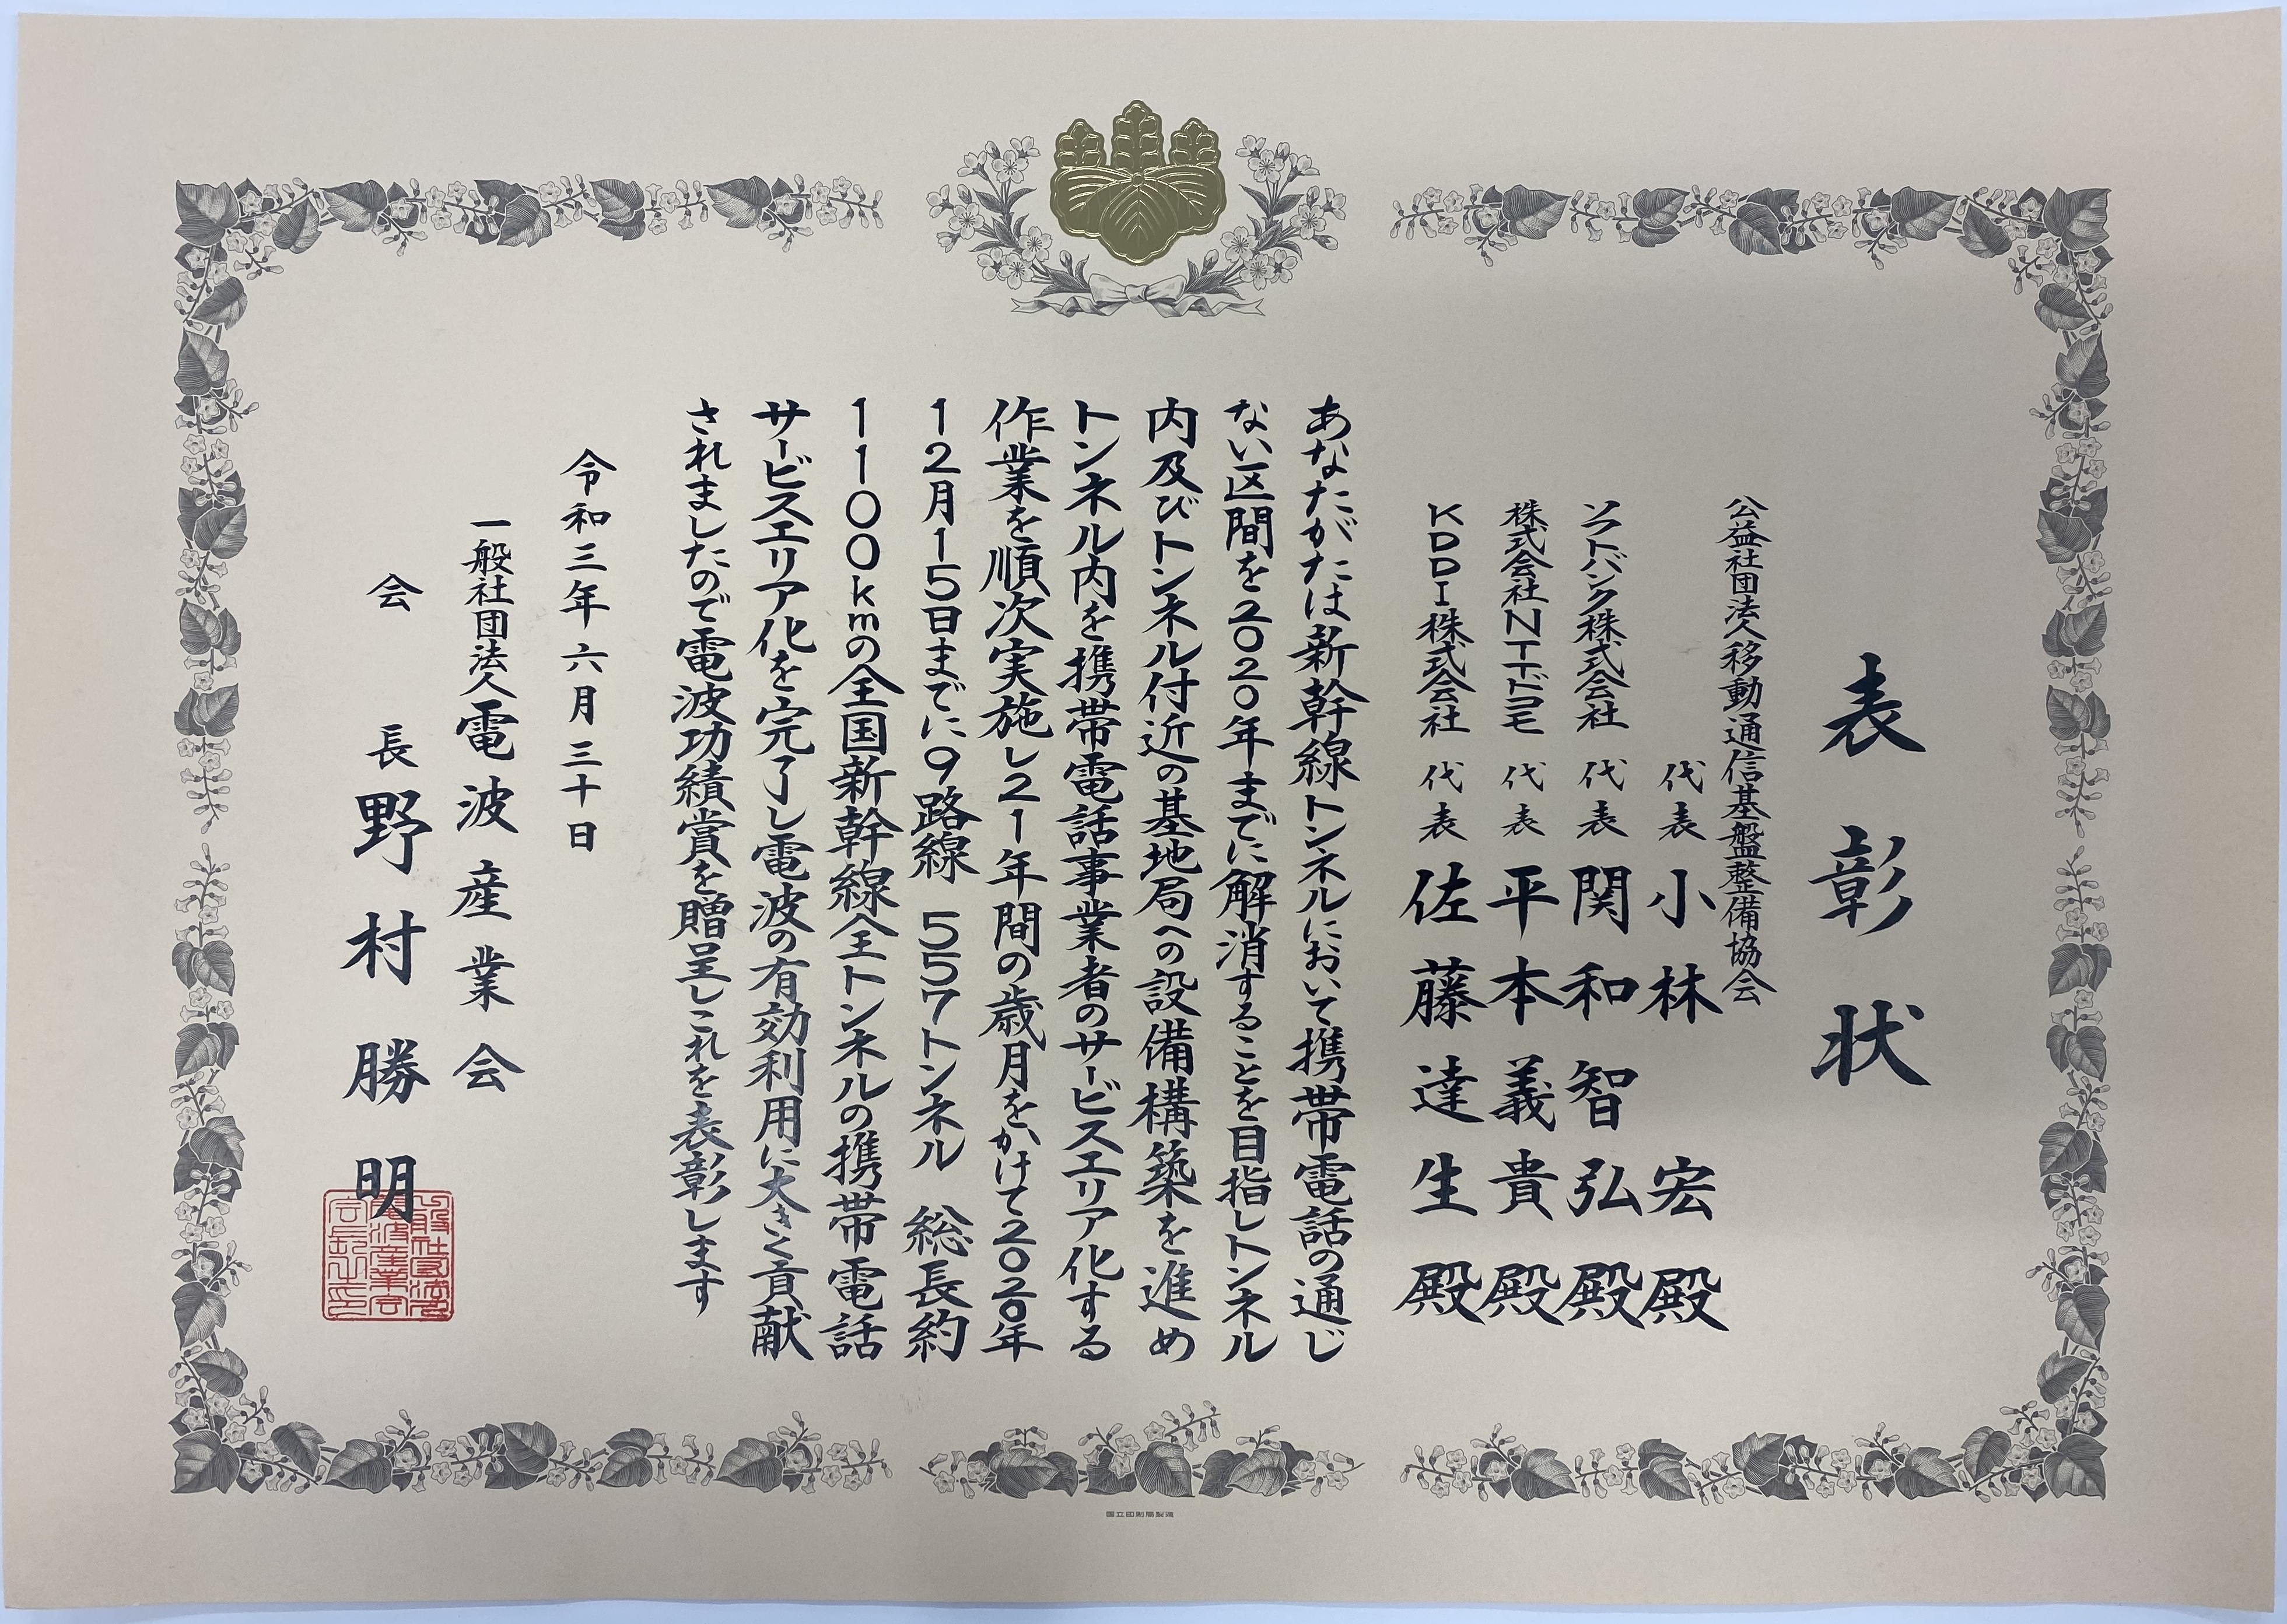 表彰状
公益社団法人移動通信基盤整備協会
代表 小林 宏 殿
ソフトバンク株式会社 代表 関和智弘 殿
株式会社NTTドコモ 代表 平本義貴 殿
KDDI株式会社 代表 佐藤達生 殿
あなたがたは新幹線トンネルにおいて携帯電話の通じ
ない区間を2020年までに解消することを目指しトンネル
内及びトンネル付近の基地局への設備構築を進め
トンネル内を携帯電話事業者のサービスエリア化する
作業を順次実施し21年間の歳月をかけて2020年
12月15日までに9路線 557トンネル 総長約
1100kmの全国新幹線全トンネルの携帯電話
サービスエリア化を完了し電波の有効利用に大きく貢献
されましたので電波功績賞を贈呈しこれを表彰します
令和三年六月三十日
一般社団法人電波産業会
会長 野村勝明
一般社団法人
電波産業会
会長之印
国立印刷局製造